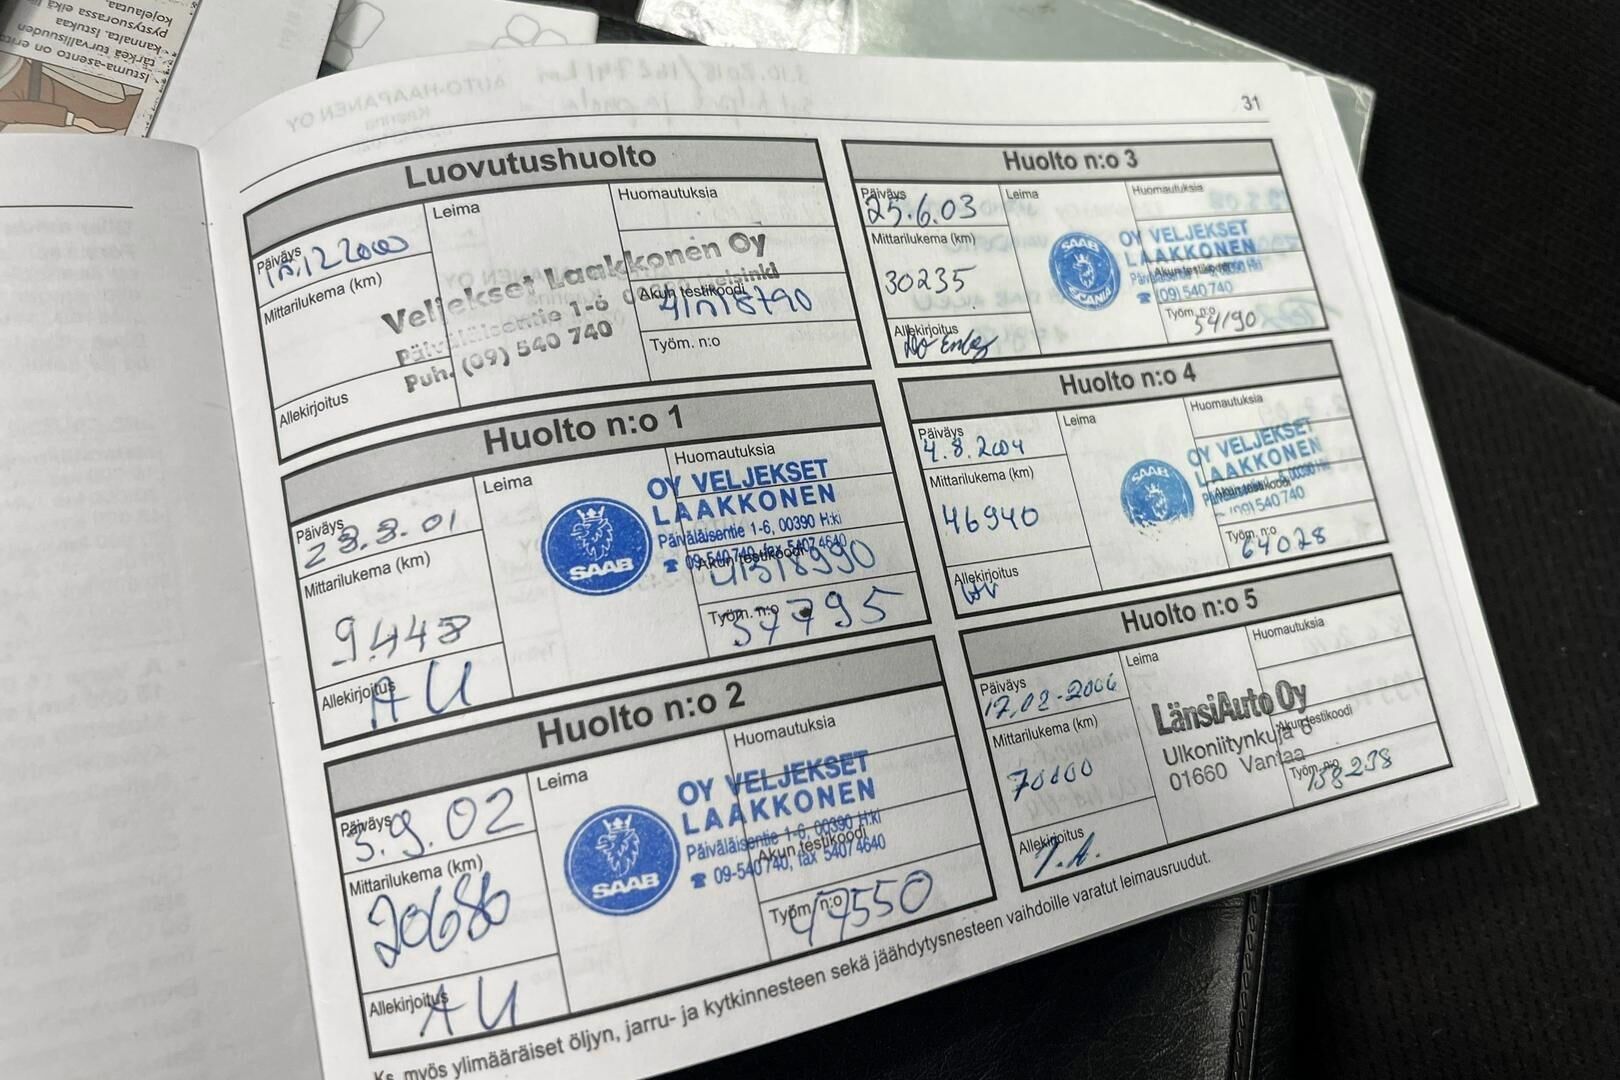 Istuma-asento on
tärkeä turvallisuuden
kannalta. Istukaa
pystysuorassa eikä
kojelautaa.
AUTO-HAAPANEN OY
31
Luovutushuolto
Päiväys
Leima
Huomautuksia
Mittarilukema (km)
Veljekset Laakkonen Oy
Päiväläisentie 1-6 Helsinki
Puh. (09) 540 740
Akun testikoodi
Työm. n:o
Allekirjoitus
Huolto n:o 1
Päiväys
Leima
Huomautuksia
Mittarilukema (km)
9.448
SAAB
OY VELJEKSET
LAAKKONEN
Päiväläisentie 1-6, 00390 H:ki
☎ 09-540 740, fax 5407 4640
Akun testikoodi
Työm. n:o
37795
Allekirjoitus
AU
Huolto n:o 2
Päiväys
3.9.02
Leima
Huomautuksia
Mittarilukema (km)
20686
SAAB
OY VELJEKSET
LAAKKONEN
Päiväläisentie 1-6, 00390 H:ki
☎ 09-540 740, fax 5407 4640
Akun testikoodi
Työm. n:o
47550
Allekirjoitus
AU
Huolto n:o 3
Päiväys
25.6.03
Leima
Huomautuksia
Mittarilukema (km)
30235
SAAB
SCANIA
OY VELJEKSET
LAAKKONEN
☎ (09) 540 740
Akun testikoodi
Työm. n:o
54190
Allekirjoitus
Huolto n:o 4
Päiväys
4.8.2004
Leima
Huomautuksia
Mittarilukema (km)
46940
SAAB
OY VELJEKSET
LAAKKONEN
(09) 540 740
Akun testikoodi
Työm. n:o
64028
Allekirjoitus
Huolto n:o 5
Päiväys
17.08-2006
Leima
Huomautuksia
Mittarilukema (km)
70000
LänsiAuto Oy
Ulkoniitynkuja 6
01660 Vantaa
Akun testikoodi
Työm. n:o
158238
Allekirjoitus
Ks. myös ylimääräiset öljyn, jarru- ja kytkinnesteen sekä jäähdytysnesteen vaihdoille varatut leimausruudut.